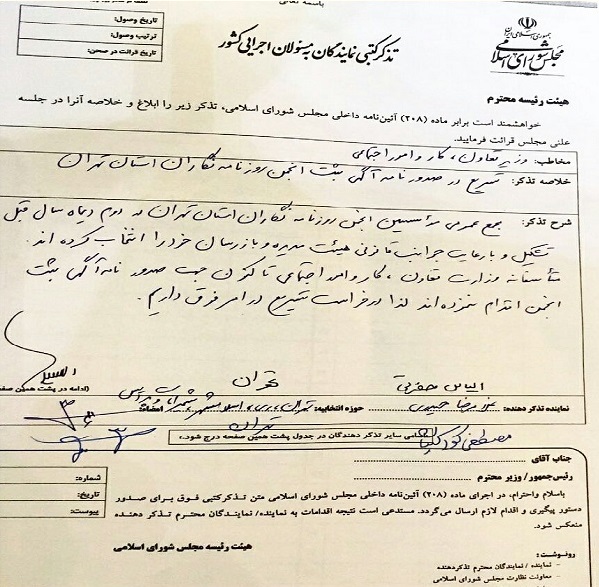 باسمه تعالی
جمهوری اسلامی ایران
مجلس شورای اسلامی
تذکر کتبی نمایندگان به مسئولان اجرایی کشور
تاریخ وصول:
ترتیب وصول:
تاریخ قرائت در صحن:
هیئت رئیسه محترم
خواهشمند است برابر ماده (۲۰۸) آئین‌نامه داخلی مجلس شورای اسلامی، تذکر زیر را ابلاغ و خلاصه آنرا در جلسه
علنی مجلس قرائت فرمایید.
مخاطب: وزیر تعاون، کار و امور اجتماعی
خلاصه تذکر: تسریع در صدور نامه آگهی ثبت انجمن روزنامه نگاران استان تهران
شرح تذکر: مجمع عمومی مؤسسین انجمن روزنامه نگاران استان تهران در دوم دیماه سال قبل
تشکیل و با رعایت جوانب قانونی هیئت مدیره و بازرسان خود را انتخاب کرده اند.
متأسفانه وزارت تعاون، کار و امور اجتماعی تاکنون جهت صدور نامه آگهی ثبت
انجمن اقدام ننموده اند لذا درخواست تسریع در امر فوق داریم.
(ادامه در پشت همین صفحه
الیاس حضرتی تهران
نماینده تذکر دهنده: غلامرضا حیدری حوزه انتخابیه: تهران، ری، اسلامشهر، شمیرانات و پردیس امضاء:
مصطفی کواکبیان تهران
اسامی سایر تذکر دهندگان در جدول پشت همین صفحه درج شود.
جناب آقای
رئیس‌جمهور/ وزیر محترم
شماره:
تاریخ:
پیوست:
باسلام واحترام، در اجرای ماده (۲۰۸) آئین‌نامه داخلی مجلس شورای اسلامی متن تذکرکتبی فوق برای صدور
دستور پیگیری و اقدام لازم ارسال می‌گردد. مستدعی است نتیجه اقدامات به نماینده/ نمایندگان محترم تذکر دهنده
منعکس شود.
هیئت رئیسه مجلس شورای اسلامی
رونوشت:
– نماینده / نمایندگان محترم تذکردهنده
– معاونت نظارت مجلس شورای اسلامی